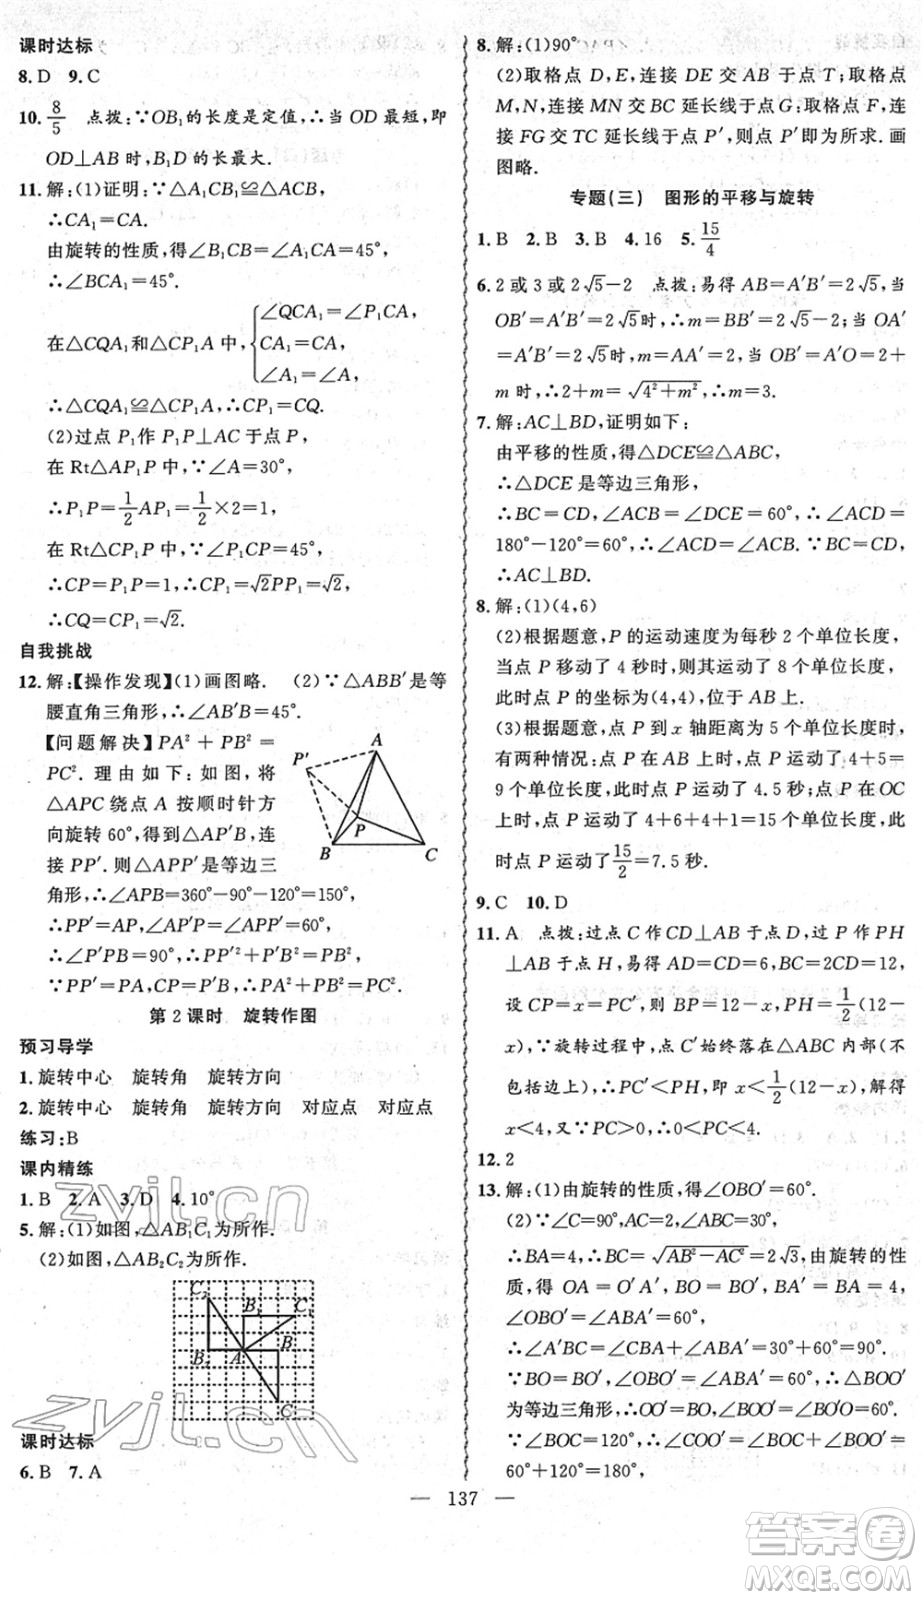 课时达标
8. D 9. C
10. 8/5 点拨:∵OB₁的长度是定值,∴当 OD 最短,即
OD⊥AB 时,B₁D 的长最大.
11. 解:(1)证明:∵△A₁CB₁≌△ACB,
∴CA₁=CA.
由旋转的性质,得∠B₁CB=∠A₁CA=45°,
∴∠BCA₁=45°.
在△CQA₁和△CP₁A 中, { ∠QCA₁=∠P₁CA,
CA₁=CA,
∠A₁=∠A,
∴△CQA₁≌△CP₁A,∴CP₁=CQ.
(2)过点 P₁作 P₁P⊥AC 于点 P,
在 Rt△AP₁P 中,∵∠A=30°,
∴P₁P=1/2 AP₁=1/2×2=1,
在 Rt△CP₁P 中,∵∠P₁CP=45°,
∴CP=P₁P=1,∴CP₁=√2PP₁=√2,
∴CQ=CP₁=√2.
自我挑战
12. 解:【操作发现】(1)画图略. (2)∵△ABB′是等
腰直角三角形,∴∠AB′B=45°.
【问题解决】PA²+PB²=
PC². 理由如下:如图,将
△APC 绕点 A 按顺时针方
向旋转 60°,得到△AP′B,连
接 PP′. 则△APP′是等边三
角形,∴∠APB=360°-90°-120°=150°,
∴PP′=AP,∠AP′P=∠APP′=60°,
∴∠P′PB=90°,∴PP′²+PB²=P′B²,
∴PA²+PB²=PC².
A
P′
P
B
C
第 2 课时 旋转作图
预习导学
1. 旋转中心 旋转角 旋转方向
2. 旋转中心 旋转角 旋转方向 对应点 对应点
练习:B
课内精练
1. B 2. A 3. D 4. 10°
5. 解:(1)如图,△AB₁C₁为所作.
(2)如图,△AB₂C₂为所作.
C₂
B₁
C₁
B₂
A
B
C
课时达标
6. B 7. A
8. 解:(1)90°
(2)取格点 D,E,连接 DE 交 AB 于点 T;取格点
M,N,连接 MN 交 BC 延长线于点 G;取格点 F,连
接 FG 交 TC 延长线于点 P′,则点 P′即为所求. 画
图略.
专题(三) 图形的平移与旋转
1. B 2. B 3. B 4. 16 5. 15/4
6. 2 或 3 或 2√5-2 点拨:易得 AB=A′B′=2√5,当
OB′=A′B′=2√5时,∴m=BB′=2√5-2;当 OA′
=A′B′=2√5时,m=AA′=2;当 OB′=A′O=2+
m 时,∴2+m=√(4²+m²),∴m=3.
7. 解:AC⊥BD,证明如下:
由平移的性质,得△DCE≌△ABC,
∴△DCE 是等边三角形,
∴BC=CD,∠ACB=∠DCE=60°,∴∠ACD=
180°-120°=60°,∴∠ACD=∠ACB. ∵BC=CD,
∴AC⊥BD.
8. 解:(1)(4,6)
(2)根据题意,P 的运动速度为每秒 2 个单位长度,
当点 P 移动了 4 秒时,则其运动了 8 个单位长度,
此时点 P 的坐标为(4,4),位于 AB 上.
(3)根据题意,点 P 到 x 轴距离为 5 个单位长度时,
有两种情况:点 P 在 AB 上时,P 运动了 4+5=
9 个单位长度,此时点 P 运动了 4.5 秒;点 P 在 OC
上时,P 运动了 4+6+4+1=15 个单位长度,此
时点 P 运动了 15/2=7.5 秒.
9. C 10. D
11. A 点拨:过点 C 作 CD⊥AB 于点 D,过 P 作 PH
⊥AB 于点 H,易得 CD=6,AB=2CD=12,
设 CP=x=PC′,则 BP=12-x,PH=1/2(12-
x),∵旋转过程中,点 C′始终落在△ABC 内部(不
包括边上),∴PC′<PH,即 x<1/2(12-x),解得
x<4,又∵PC>0,∴0<PC<4.
12. 2
13. 解:(1)由旋转的性质,得∠OBO′=60°.
(2)∵∠C=90°,AC=2,∠ABC=30°,
∴BA=4,∴BC=√(AB²-AC²)=2√3,由旋转的性
质,得 OA=O′A′,BO=BO′,BA′=BA=4,
∠OBO′=∠ABA′=60°,
∴∠A′BC=∠CBA+∠ABA′=30°+60°=90°,
∵BO=BO′,∠OBO′=∠ABA′=60°,∴△BOO′
为等边三角形,∴OO′=BO,∠BOO′=60°.
∵∠BOC=120°,∴∠COO′=∠BOC+∠BOO′=
120°+60°=180°,
— 137 —
zyjl.cn
zyjl.cn
答案卷
MXQE.COM